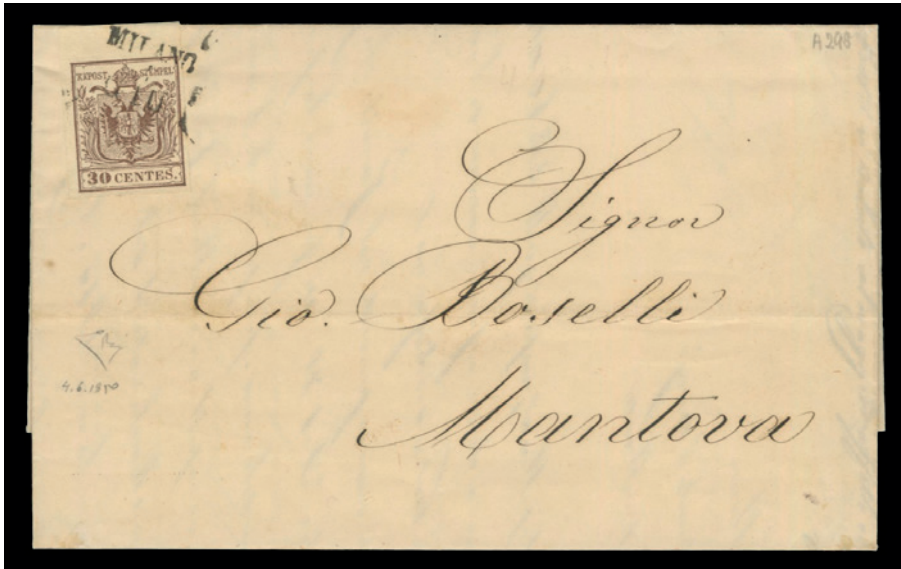 A298
MILANO
KKPOST-STEMPEL
30 CENTES.
Signor
Gio. Boselli
Mantova
4.6.1850